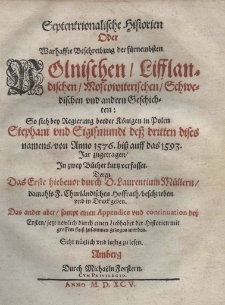 Septentrionalische Historien
Oder
Warhaffte Beschreibung der fürnembsten
Polnischen / Lifflän-
dischen / Moscowiterischen / Schwe-
dischen vnd andern Geschich-
ten:
So sich bey Regierung beeder Königen in Polen
Stephani vnd Sigismundi deß dritten dises
namens / von Anno 1576. biß auff das 1593.
Jar zugetragen /
In zwey Bücher kurtz verfasset.
Deren
Das Erste hiebeuor durch D. Laurentium Müllern /
damahls F. Churländischen Hoffrath / beschrieben
vnd in Druck geben.
Das ander aber / sampt einen Appendice vnd continuation deß
Ersten / jetzt newlich durch einen liebhaber der Historien mit
grossem fleiß zusammen getragen worden.
Sehr nützlich vnd lustig zu lesen.
Amberg
Durch Michaeln Forstern.
CVM PRIVILEGIO.
ANNO M. D XC V.